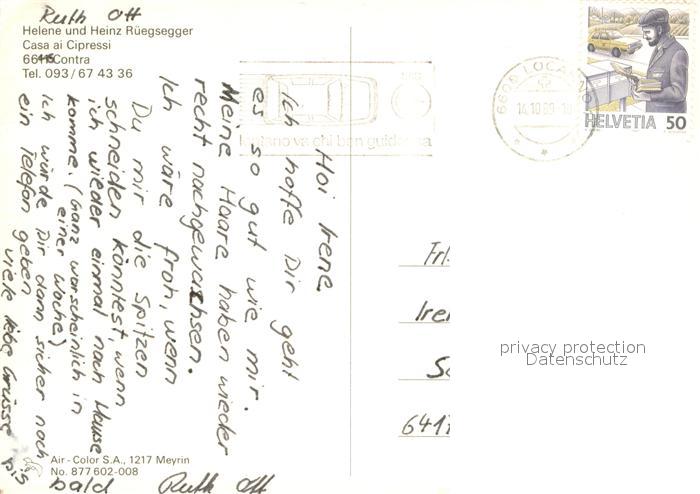 Ruth Ott
Helene und Heinz Rüegsegger
Casa ai Cipressi
6645 Contra
Tel. 093/67 43 36
Hoi Irene
Ich hoffe Dir geht
es so gut wie mir.
Meine Haare haben wieder
recht nachgewachsen.
Ich wäre froh, wenn
Du mir die Spitzen
schneiden könntest, wenn
ich wieder einmal nach Hause
komme. (Ganz warscheinlich in
einer Woche)
Ich würde Dir dann sicher noch
ein Telefon geben
viele liebe Grüsse bis
bald Ruth Ott
Air-Color S.A., 1217 Meyrin
No. 877602-008
lontano va chi ben guida
6600 LOCARNO
14.10.89
HELVETIA 50
Frl.
Ire
6417
privacy protection
Datenschutz